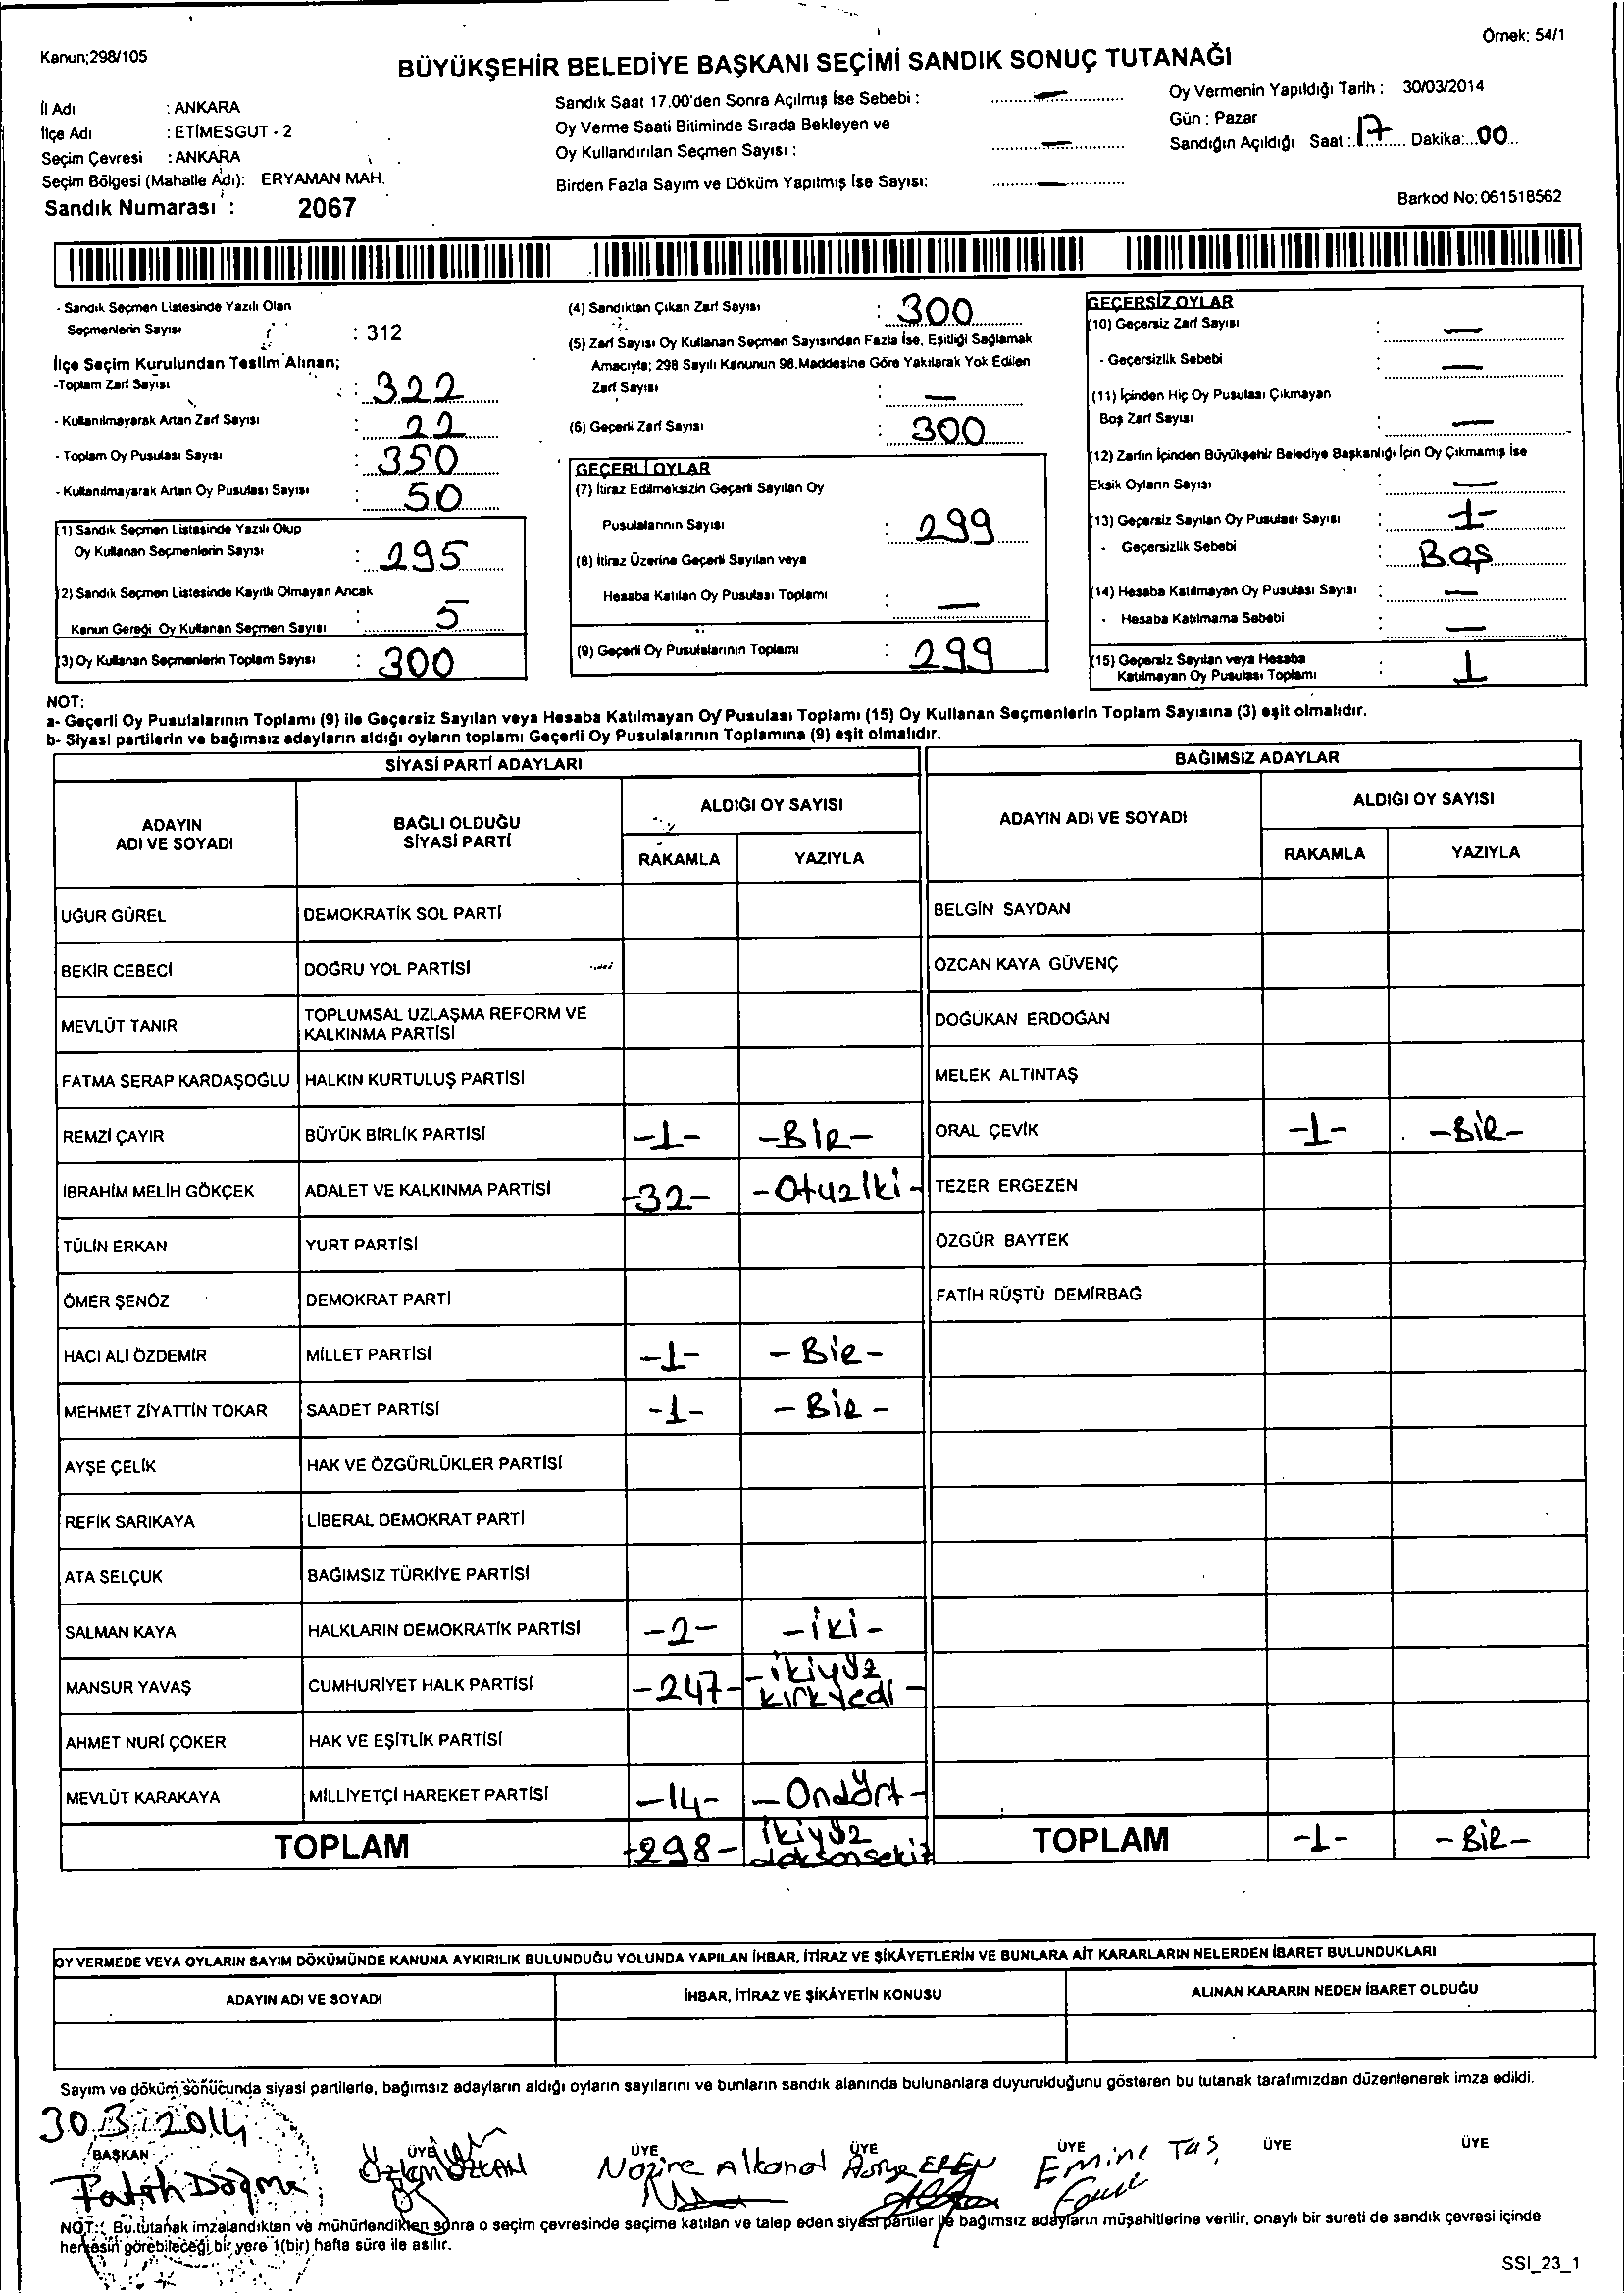 Örnek: 54/1
Kanun;298/105
BÜYÜKŞEHİR BELEDİYE BAŞKANI SEÇİMİ SANDIK SONUÇ TUTANAĞI
İl Adı : ANKARA
İlçe Adı : ETİMESGUT - 2
Seçim Çevresi : ANKARA
Seçim Bölgesi (Mahalle Adı): ERYAMAN MAH.
Sandık Numarası : 2067
Sandık Saat 17.00'den Sonra Açılmış İse Sebebi : —
Oy Verme Saati Bitiminde Sırada Bekleyen ve
Oy Kullandırılan Seçmen Sayısı : —
Birden Fazla Sayım ve Döküm Yapılmış İse Sayısı: —
Oy Vermenin Yapıldığı Tarih : 30/03/2014
Gün : Pazar
Sandığın Açıldığı Saat : 17 Dakika: 00
Barkod No: 061518562
- Sandık Seçmen Listesinde Yazılı Olan
Seçmenlerin Sayısı : 312
İlçe Seçim Kurulundan Teslim Alınan;
-Toplam Zarf Sayısı : 322
- Kullanılmayarak Artan Zarf Sayısı : 22
- Toplam Oy Pusulası Sayısı : 350
- Kullanılmayarak Artan Oy Pusulası Sayısı : 50
(1) Sandık Seçmen Listesinde Yazılı Olup
Oy Kullanan Seçmenlerin Sayısı : 295
(2) Sandık Seçmen Listesinde Kayıtlı Olmayan Ancak
Kanun Gereği Oy Kullanan Seçmen Sayısı : 5
(3) Oy Kullanan Seçmenlerin Toplam Sayısı : 300
(4) Sandıktan Çıkan Zarf Sayısı : 300
(5) Zarf Sayısı Oy Kullanan Seçmen Sayısından Fazla İse, Eşitliği Sağlamak
Amacıyla; 298 Sayılı Kanunun 98.Maddesine Göre Yakılarak Yok Edilen
Zarf Sayısı : —
(6) Geçerli Zarf Sayısı : 300
GEÇERLİ OYLAR
(7) İtiraz Edilmeksizin Geçerli Sayılan Oy
Pusulalarının Sayısı : 299
(8) İtiraz Üzerine Geçerli Sayılan veya
Hesaba Katılan Oy Pusulası Toplamı : —
(9) Geçerli Oy Pusulalarının Toplamı : 299
GEÇERSİZ OYLAR
(10) Geçersiz Zarf Sayısı : —
- Geçersizlik Sebebi : —
(11) İçinden Hiç Oy Pusulası Çıkmayan
Boş Zarf Sayısı : —
(12) Zarfın İçinden Büyükşehir Belediye Başkanlığı İçin Oy Çıkmamış İse
Eksik Oyların Sayısı : —
(13) Geçersiz Sayılan Oy Pusulası Sayısı : 1-
- Geçersizlik Sebebi : Boş
(14) Hesaba Katılmayan Oy Pusulası Sayısı : —
- Hesaba Katılmama Sebebi : —
(15) Geçersiz Sayılan veya Hesaba
Katılmayan Oy Pusulası Toplamı : 1
NOT:
a- Geçerli Oy Pusulalarının Toplamı (9) ile Geçersiz Sayılan veya Hesaba Katılmayan Oy Pusulası Toplamı (15) Oy Kullanan Seçmenlerin Toplam Sayısına (3) eşit olmalıdır.
b- Siyasi partilerin ve bağımsız adayların aldığı oyların toplamı Geçerli Oy Pusulalarının Toplamına (9) eşit olmalıdır.
SİYASİ PARTİ ADAYLARI BAĞIMSIZ ADAYLAR
ADAYIN ADI VE SOYADI BAĞLI OLDUĞU SİYASİ PARTİ ALDIĞI OY SAYISI RAKAMLA YAZIYLA ADAYIN ADI VE SOYADI ALDIĞI OY SAYISI RAKAMLA YAZIYLA
UĞUR GÜREL DEMOKRATİK SOL PARTİ BELGİN SAYDAN
BEKİR CEBECİ DOĞRU YOL PARTİSİ ÖZCAN KAYA GÜVENÇ
MEVLÜT TANIR TOPLUMSAL UZLAŞMA REFORM VE KALKINMA PARTİSİ DOĞUKAN ERDOĞAN
FATMA SERAP KARDAŞOĞLU HALKIN KURTULUŞ PARTİSİ MELEK ALTINTAŞ
REMZİ ÇAYIR BÜYÜK BİRLİK PARTİSİ -1- -Bir- ORAL ÇEVİK -1- -Bir-
İBRAHİM MELİH GÖKÇEK ADALET VE KALKINMA PARTİSİ -32- -Otuziki- TEZER ERGEZEN
TÜLİN ERKAN YURT PARTİSİ ÖZGÜR BAYTEK
ÖMER ŞENÖZ DEMOKRAT PARTİ FATİH RÜŞTÜ DEMİRBAĞ
HACI ALİ ÖZDEMİR MİLLET PARTİSİ -1- -Bir-
MEHMET ZİYATTİN TOKAR SAADET PARTİSİ -1- -Bir-
AYŞE ÇELİK HAK VE ÖZGÜRLÜKLER PARTİSİ
REFİK SARIKAYA LİBERAL DEMOKRAT PARTİ
ATA SELÇUK BAĞIMSIZ TÜRKİYE PARTİSİ
SALMAN KAYA HALKLARIN DEMOKRATİK PARTİSİ -2- -iki-
MANSUR YAVAŞ CUMHURİYET HALK PARTİSİ -247- -ikiyüz kırkyedi-
AHMET NURİ ÇOKER HAK VE EŞİTLİK PARTİSİ
MEVLÜT KARAKAYA MİLLİYETÇİ HAREKET PARTİSİ -14- -Ondört-
TOPLAM -298- ikiyüz doksansekiz TOPLAM -1- -Bir-
OY VERMEDE VEYA OYLARIN SAYIM DÖKÜMÜNDE KANUNA AYKIRILIK BULUNDUĞU YOLUNDA YAPILAN İHBAR, İTİRAZ VE ŞİKÂYETLERİN VE BUNLARA AİT KARARLARIN NELERDEN İBARET BULUNDUKLARI
ADAYIN ADI VE SOYADI İHBAR, İTİRAZ VE ŞİKÂYETİN KONUSU ALINAN KARARIN NEDEN İBARET OLDUĞU
Sayım ve döküm sonucunda siyasi partilerle, bağımsız adayların aldığı oyların sayılarını ve bunların sandık alanında bulunanlara duyurulduğunu gösteren bu tutanak tarafımızdan düzenlenerek imza edildi.
30.3.2014
BAŞKAN ÜYE ÜYE ÜYE ÜYE ÜYE ÜYE
Fatih Doğma Özlem ÖZKAN Nazire Alkanat Asiye EREN Emine Taş
NOT: Bu tutanak imzalandıktan ve mühürlendikten sonra o seçim çevresinde seçime katılan ve talep eden siyasi partiler ile bağımsız adayların müşahitlerine verilir, onaylı bir sureti de sandık çevresi içinde
herkesin görebileceği bir yere 1(bir) hafta süre ile asılır.
SSI_23_1